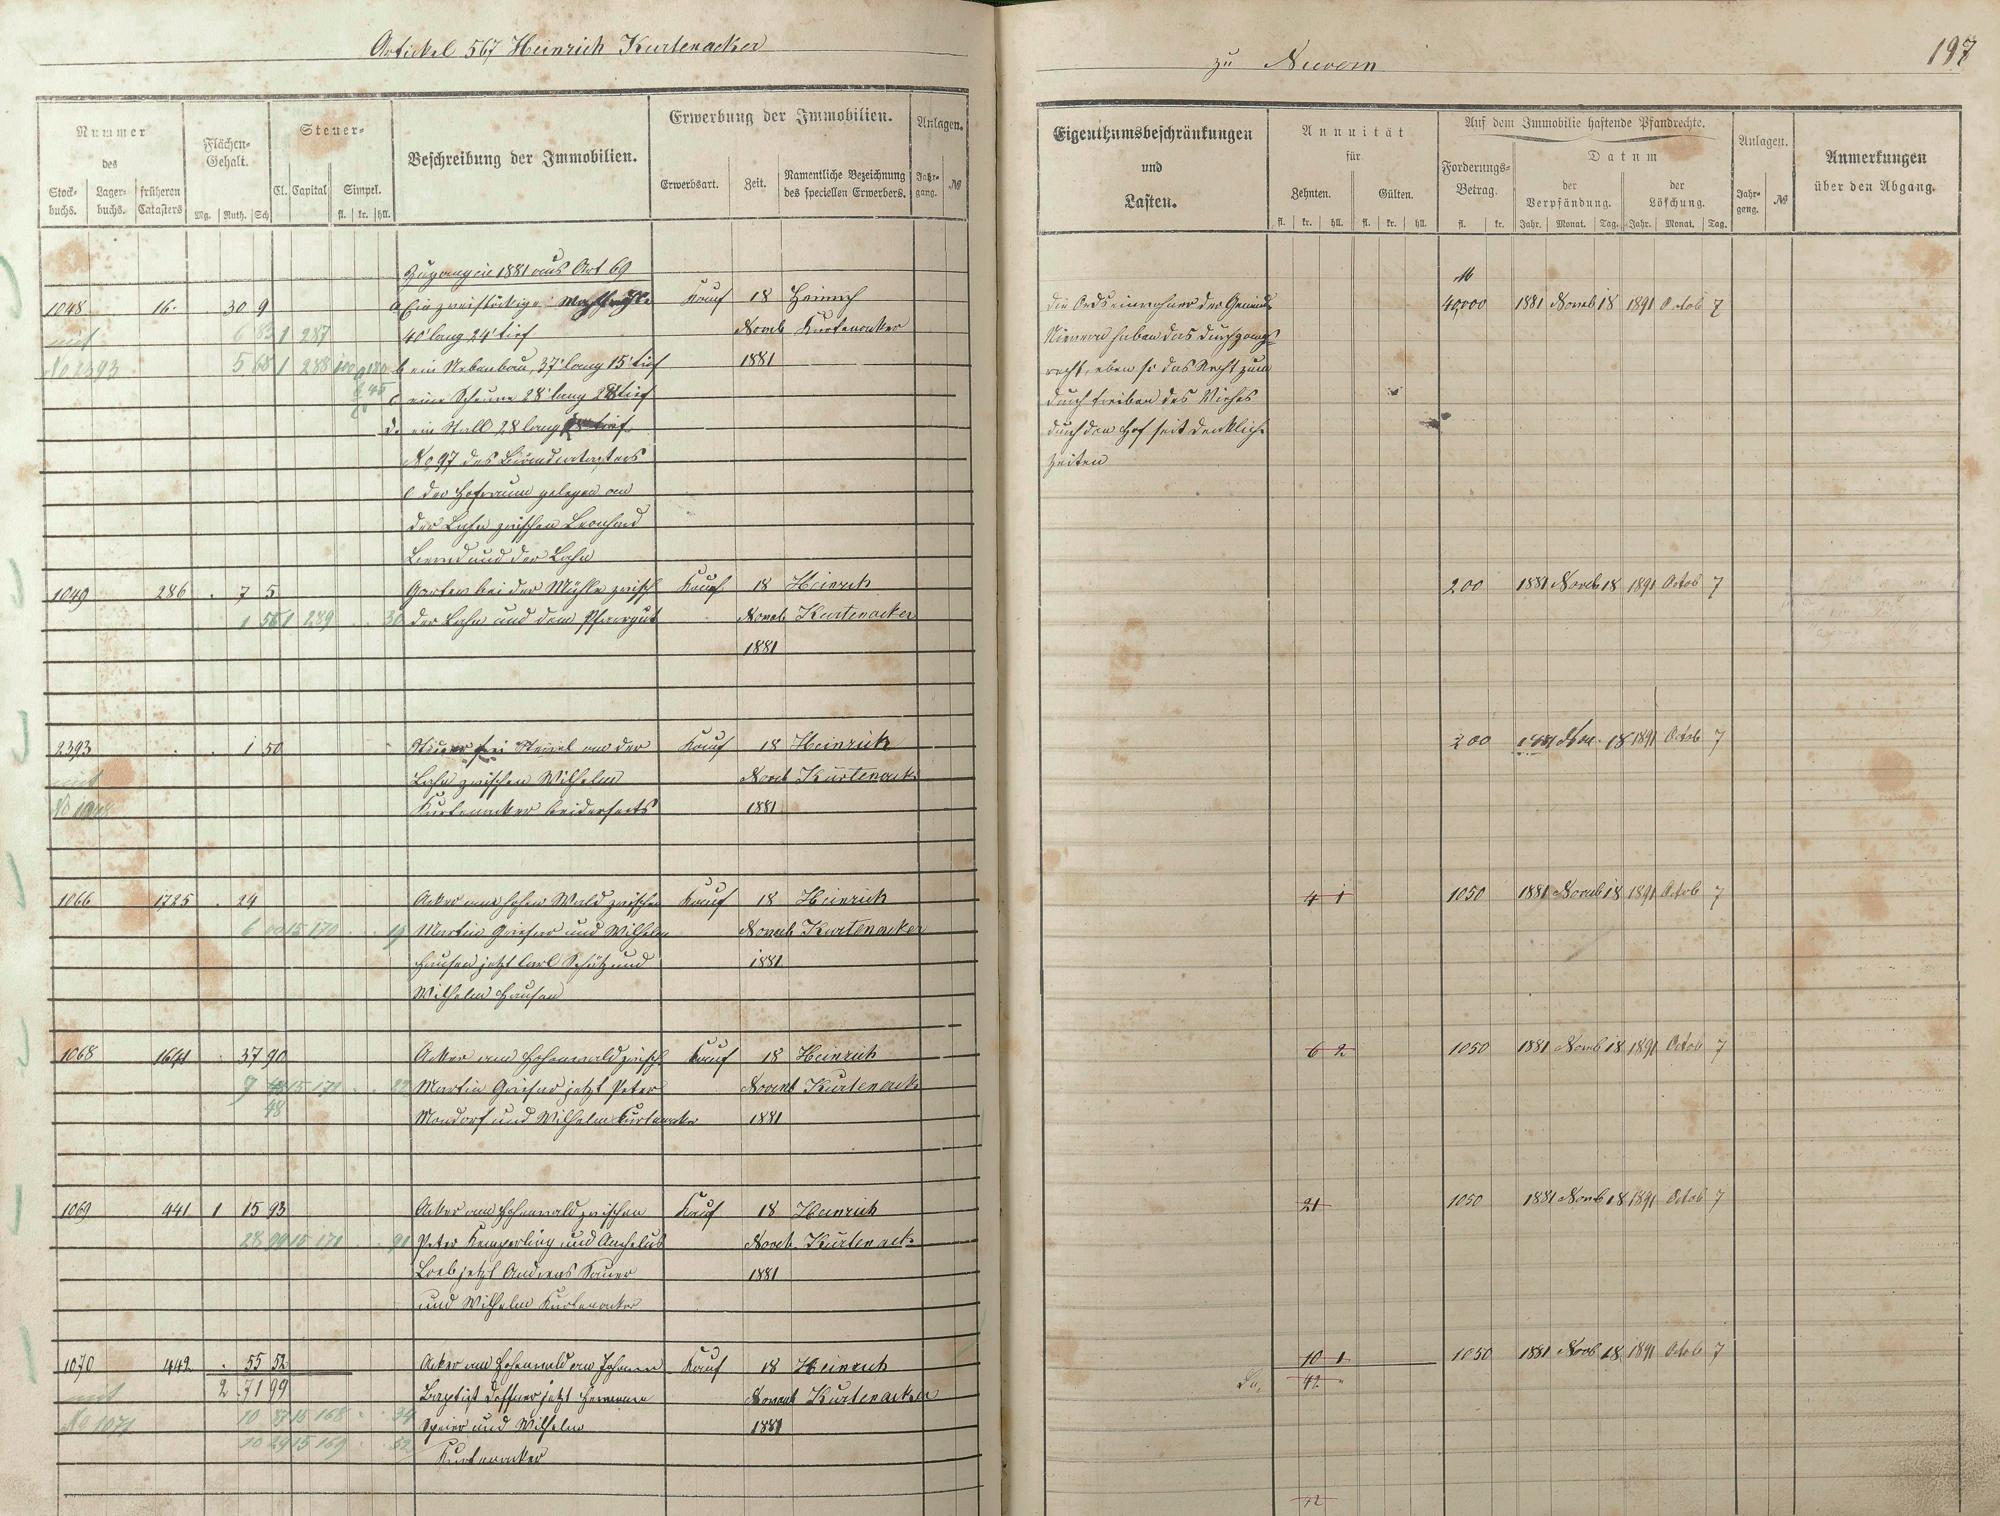 Artickel 567 Heinrich Kurtenacker
zu Nievern
197
Nummer
des
Stock-
buchs.
Lager-
buchs.
früheren
Catasters
Flächen-
Gehalt.
Mg. Ruth. Sch
Steuer-
Cl. Capital Simpel.
fl. kr. hll.
Beschreibung der Immobilien.
Erwerbung der Immobilien.
Erwerbsart. Zeit. Namentliche Bezeichnung
des speciellen Erwerbers.
Anlagen.
Jahr-
gang. №
Eigenthumsbeschränkungen
und
Lasten.
Annuität
für
Zehnten. Gülten.
fl. kr. hll. fl. kr. hll.
Auf dem Immobilie haftende Pfandrechte.
Forderungs-
Betrag.
fl. kr.
Datum
der
Verpfändung.
der
Löschung.
Jahr. Monat. Tag. Jahr. Monat. Tag.
Anlagen.
Jahr-
gang. №
Anmerkungen
über den Abgang.
Zugang in 1881 aus Art 69
1048 16 30 9 a Ein zweistöckige Kauf 18 Heinrich
6 83 1 287 40' lang 24' tief Novb Kurtenacker
mit
No 2393 5 68 1 288 b ein Nebenbau, 37' lang 15' tief 1881
c eine Scheune 28' lang 28' tief
d. ein Stall 28 lang tief
No 97 des Brandcatasters
e der Hofraum gelegen an
der Lahn zwischen Leonhard
und der Lahn
die Ortseinwohner der Gemeinde
Nievern haben das Durchgangs-
recht, eben so das Recht zum
durch treiben des Viehes
durch den Hof seit denklich
Zeiten
M
40,000 1881 Novb 18 1891 Octob 7
1049 286 7 5 Garten bei der Mühle zwisch Kauf 18 Heinrich
1 56 1 289 30 der Lahn und dem Pfarrgut Novb Kurtenacker
1881
200 1881 Novb 18 1891 Octob 7
2393 1 50 an der Kauf 18 Heinrich
mit Lahn zwischen Wilhelm Novb Kurtenack
No 1048 Kurtenacker beiderseits 1881
200 1881 Nov 18 1891 Octob 7
1066 1725 29 Acker am hohen Wald zwischen Kauf 18 Heinrich
6 15 170 Martin und Wilhelm Novb Kurtenacker
Hausen jetzt Carl Schütz und 1881
Wilhelm Hausen
4 1 1050 1881 Novb 18 1891 Octob 7
1068 1641 37 90 Acker am Hohenwald zwisch Kauf 18 Heinrich
9 15 171 22 Martin jetzt Peter Novb Kurtenack
48 Mondorf und Wilhelm Kurtenacker 1881
6 2 1050 1881 Novb 18 1891 Octob 7
1069 441 1 15 93 Acker am Hohenwald zwischen Kauf 18 Heinrich
28 15 171 91 Peter Kemperling und Novb Kurtenack
Loeb jetzt Andreas Sauer 1881
und Wilhelm Kurtenacker
21 1050 1881 Novb 18 1891 Octob 7
1070 442 55 52 Acker am Hohenwald an Johann Kauf 18 Heinrich
mit 2 71 99 Baptist jetzt Hermann Novb Kurtenacker
No 1071 10 15 168 34 Speier und Wilhelm 1881
10 29 15 169 52 Kurtenacker
10 1 1050 1881 Novb 18 1891 Octob 7
42